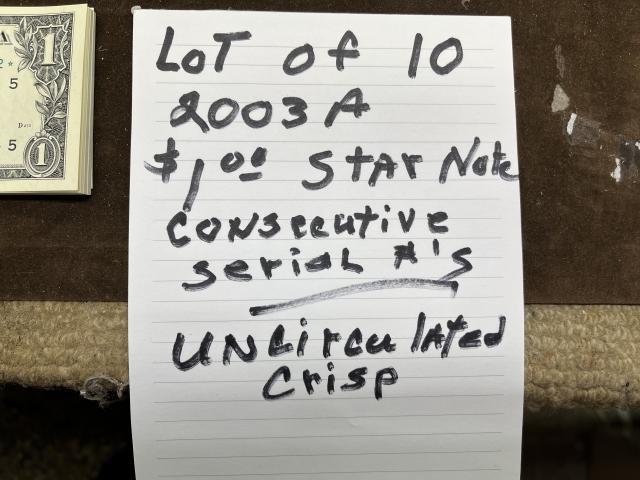 LoT of 10
2003 A
$1.00 StAr Note
consecutive
serial #'s
UNcirculAted
crisp
1
5
5
1